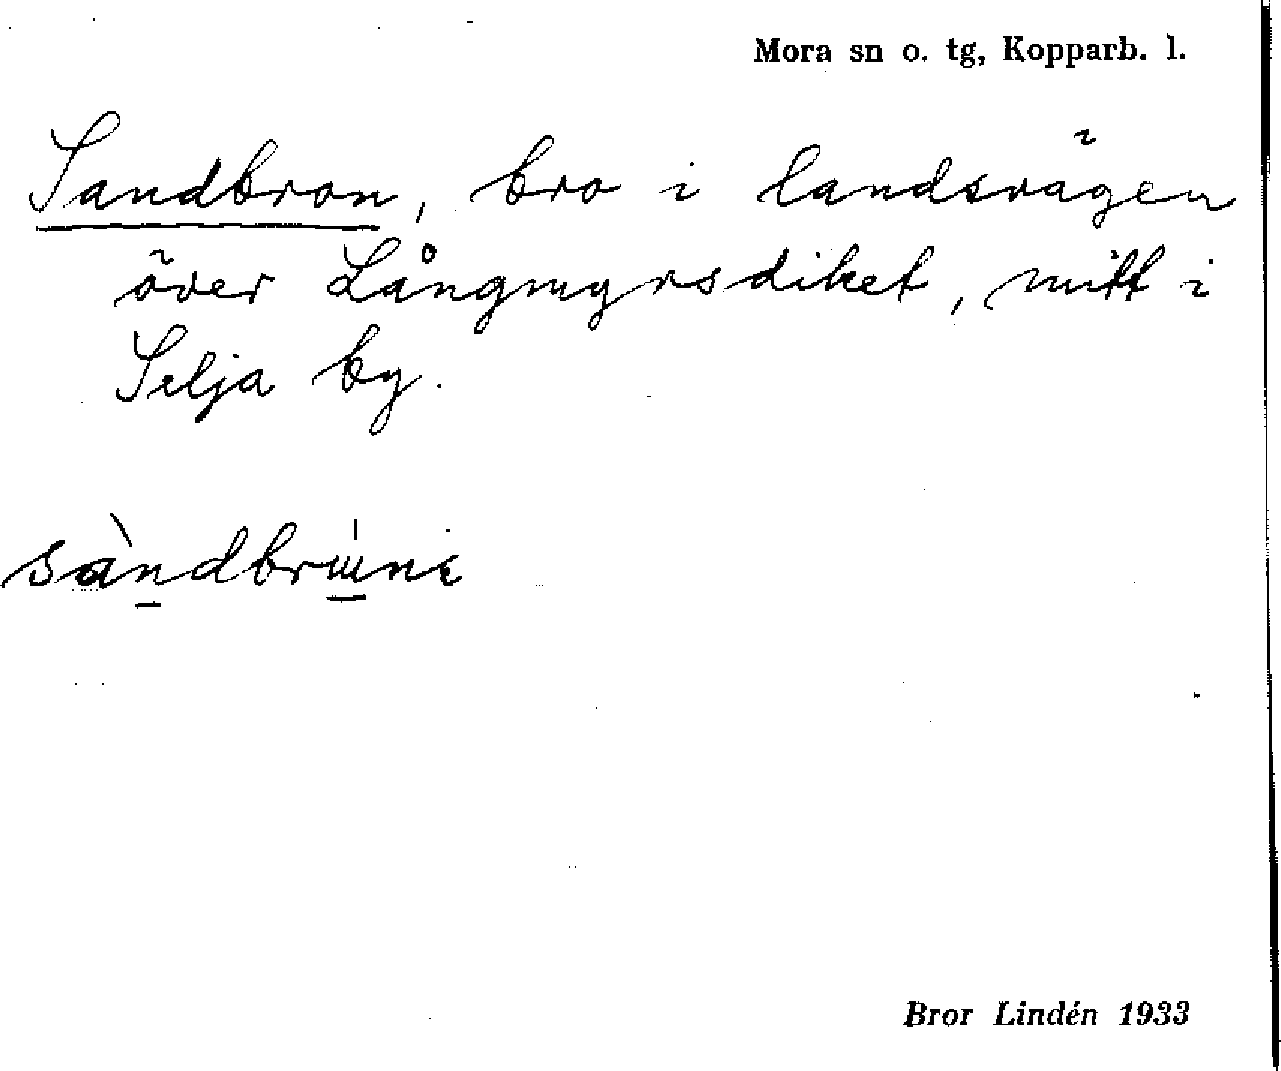 Mora sn o. tg, Kopparb. l.
Sandbron, bro i landsvägen
över Långmyrsdiket, mitt i
Selja by.
Bror Lindén 1933